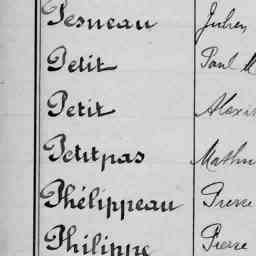 Pesneau Julien
Petit Paul M
Petit Alexi
Petitpas Mathu
Phélippeau Pierre
Philippe Pierre